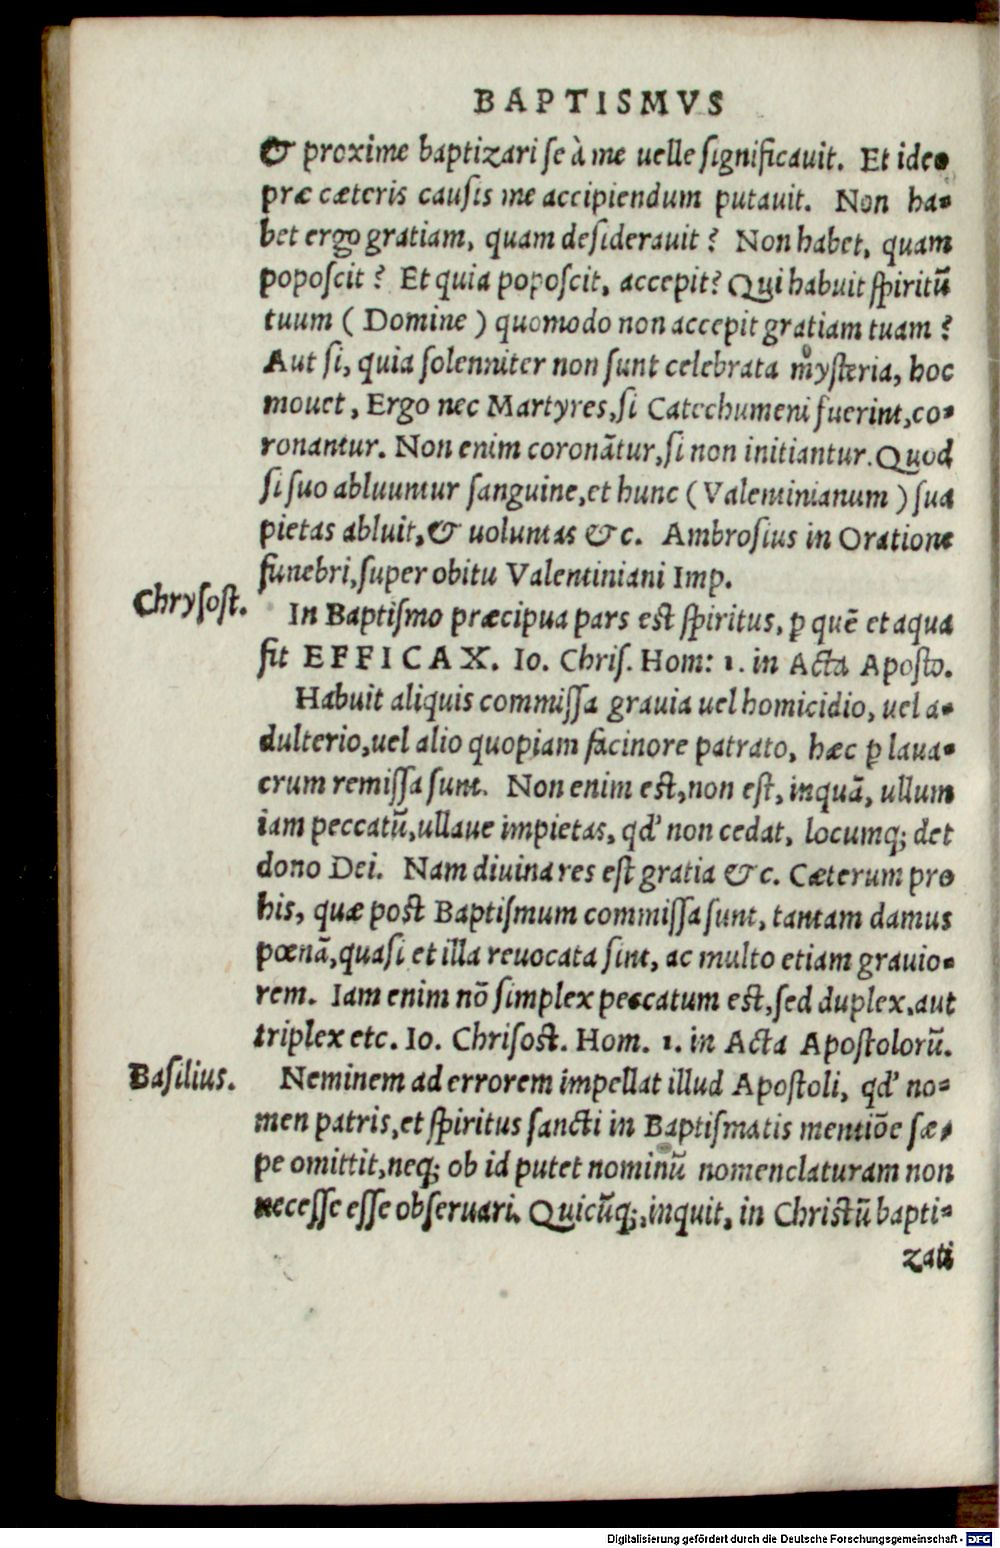 BAPTISMVS
& proxime baptizari se à me uelle significauit. Et ideo
præ cæteris causis me accipiendum putauit. Non ha-
bet ergo gratiam, quam desiderauit? Non habet, quam
poposcit? Et quia poposcit, accepit? Qui habuit spiritũ
tuum (Domine) quomodo non accepit gratiam tuam?
Aut si, quia solenniter non sunt celebrata mysteria, hoc
mouet, Ergo nec Martyres, si Catechumeni fuerint, co-
ronantur. Non enim coronãtur, si non initiantur. Quod
si suo abluuntur sanguine, et hunc (Valentinianum) sua
pietas abluit, & uoluntas &c. Ambrosius in Oratione
funebri, super obitu Valentiniani Imp.
Chrysost.
In Baptismo præcipua pars est spiritus, ꝑ quẽ et aqua
fit EFFICAX. Io. Chris. Hom: 1. in Acta Aposto.
Habuit aliquis commissa grauia uel homicidio, uel a-
dulterio, uel alio quopiam facinore patrato, hæc ꝑ laua-
crum remissa sunt. Non enim est, non est, inquã, ullum
iam peccatũ, ullaue impietas, qd' non cedat, locumq; det
dono Dei. Nam diuina res est gratia &c. Cæterum pro
his, quæ post Baptismum commissa sunt, tantam damus
pœnã, quasi et illa reuocata sint, ac multo etiam grauio-
rem. Iam enim nõ simplex peccatum est, sed duplex, aut
triplex etc. Io. Chrisost. Hom. 1. in Acta Apostolorũ.
Basilius.
Neminem ad errorem impellat illud Apostoli, qd' no-
men patris, et spiritus sancti in Baptismatis mentiõe sæ-
pe omittit, neq; ob id putet nominũ nomenclaturam non
necesse esse obseruari. Quicũq;, inquit, in Christũ bapti-
zati
Digitalisierung gefördert durch die Deutsche Forschungsgemeinschaft - DFG